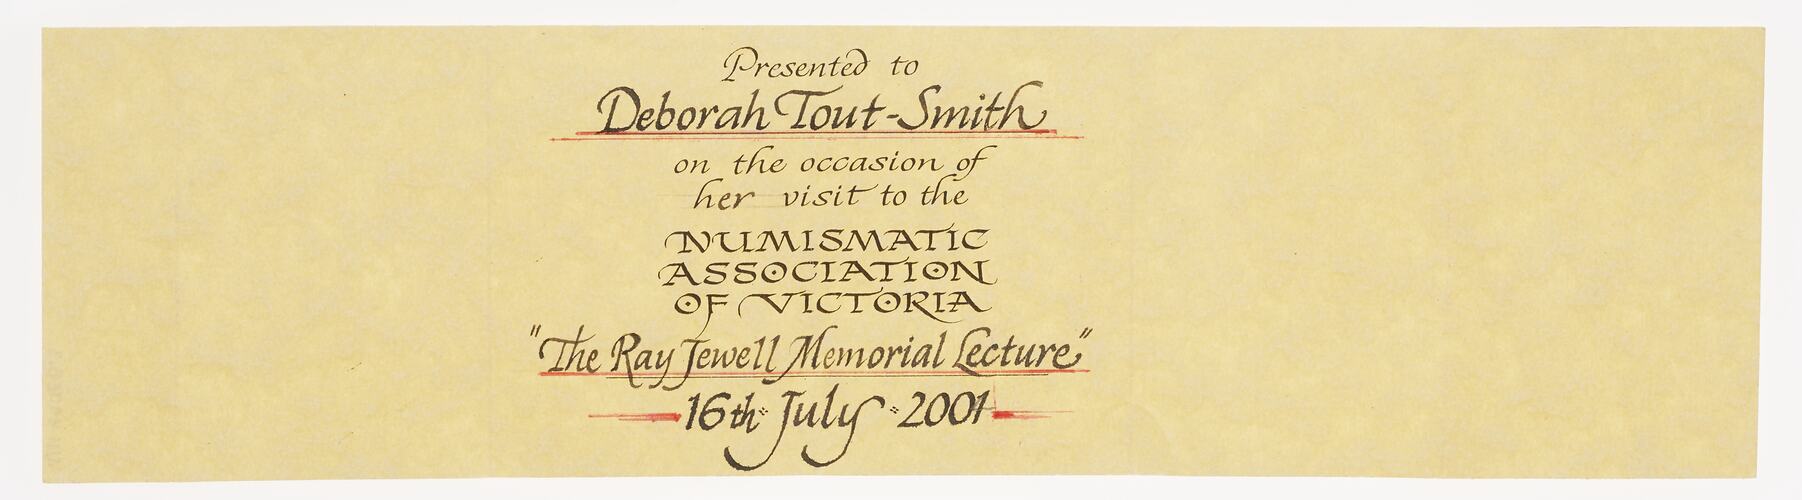 Presented to
Deborah Tout-Smith
on the occasion of
her visit to the
NUMISMATIC
ASSOCIATION
OF VICTORIA
"The Ray Jewell Memorial Lecture"
16th July 2001